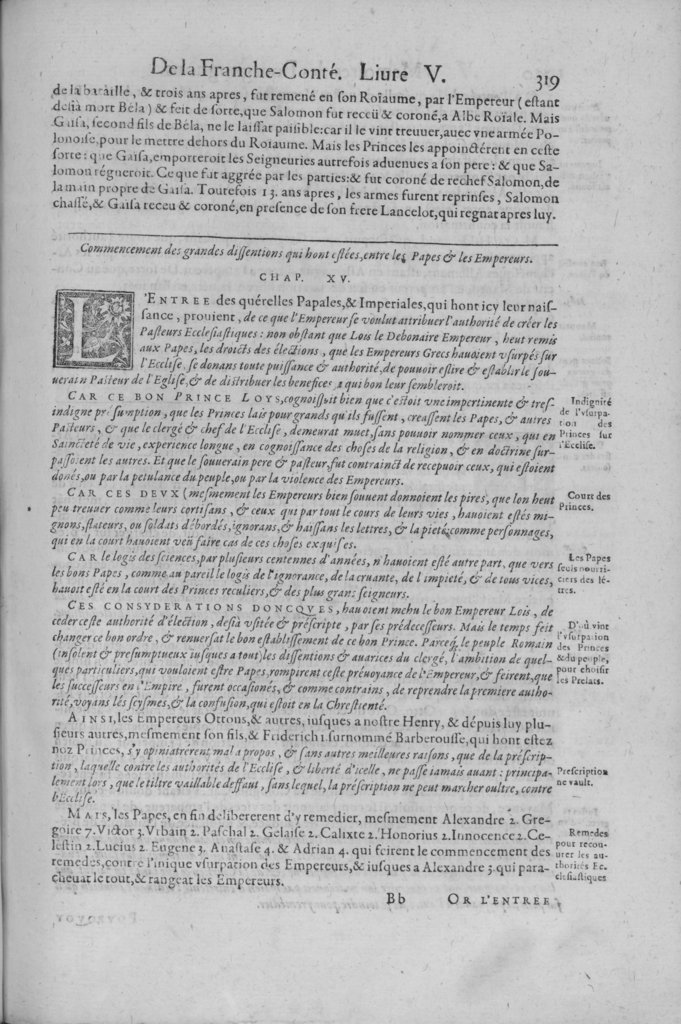 De la Franche-Conté. Liure V. 319
de la bataille, & trois ans apres, fut remené en son Roïaume, par l'Empereur (estant
desià mort Béla) & feit de sorte, que Salomon fut receü & coroné, a Albe Roïale. Mais
Gaïsa, second fils de Béla, ne le laissat paisible: car il le vint treuuer, auec vne armée Po-
lonoise, pour le mettre dehors du Roïaume. Mais les Princes les appoinctérent en ceste
sorte: que Gaïsa, emporteroit les Seigneuries autrefois aduenues a son pere: & que Sa-
lomon régneroit. Ce que fut aggrée par les parties: & fut coroné de rechef Salomon, de
la main propre de Gaïsa. Toutefois 13. ans apres, les armes furent reprinses, Salomon
chassé, & Gaïsa receu & coroné, en presence de son frere Lancelot, qui regnat apres luy.
Commencement des grandes dissentions qui hont estées, entre les Papes & les Empereurs.
CHAP. XV.
L'ENTREE des quérelles Papales, & Imperiales, qui hont icy leur nais-
sance, prouient, de ce que l'Empereur se voulut attribuer l'authorité de créer les
Pasteurs Ecclesiastiques: non obstant que Lois le Debonaire Empereur, heut remis
aux Papes, les droicts des élections, que les Empereurs Grecs hauoient vsurpés sur
l'Ecclise, se donans toute puissance & authorité, de pouuoir eslire & establir le sou-
uerain Pasteur de l'Eglise, & de distribuer les benefices a qui bon leur sembleroit.
CAR CE BON PRINCE LOYS, cognoissoit bien que c'estoit vne impertinente & tres-
indigne présumption, que les Princes lais pour grands qu'ils fussent, creassent les Papes, & autres
Pasteurs, & que le clergé & chef de l'Ecclise, demeurat muet, sans pouuoir nommer ceux, qui en
Saincteté de vie, experience longue, en cognoissance des choses de la religion, & en doctrine sur-
passoient les autres. Et que le souuerain pere & pasteur, fut contrainct de recepuoir ceux, qui estoient
donés, ou par la petulance du peuple, ou par la violence des Empereurs.
Indignité
de l'vsurpa-
tion des
Princes sur
l'Ecclise.
CAR CES DEVX (mesmement les Empereurs bien souuent donnoient les pires, que lon heut
peu treuuer comme leurs cortisans, & ceux qui par tout le cours de leurs vies, hauoient estés mi-
gnons, flateurs, ou soldats débordés, ignorans, & haïssans les lettres, & la pieté, comme personnages,
qui en la court hauoient veü faire cas de ces choses exquises.
Court des
Princes.
CAR le logis des sciences, par plusieurs centennes d'années, n'hauoient esté autre part, que vers
les bons Papes, comme au pareil le logis de l'ignorance, de la cruauté, de l'impieté, & de tous vices,
hauoit esté en la court des Princes reculiers, & des plus grans seigneurs.
Les Papes
seuls nourri-
ciers des lé-
tres.
CES CONSYDERATIONS DONCQVES, hauoient mehu le bon Empereur Lois, de
céder ceste authorité d'élection, desià vsitée & préscripte, par ses prédecesseurs. Mais le temps feit
changer ce bon ordre, & renuersat le bon establissement de ce bon Prince. Parceq; le peuple Romain
(insolent & presumptueux iusques a tout) les dissentions & auarices du clergé, l'ambition de quel-
ques particuliers, qui vouloient estre Papes, rompirent ceste préuoyance de l'Empereur, & feirent, que
les successeurs en l'Empire, furent occasionés, & comme contrains, de reprendre la premiere autho-
rité, voyans lés scysmes, & la confusion, qui estoit en la Chrestienté.
D'où vint
l'vsurpation
des Princes
& du peuple,
pour choisir
les Prelats.
AINSI, les Empereurs Ottons, & autres, iusques a nostre Henry, & dépuis luy plu-
sieurs autres, mesmement son fils, & Friderich 1. surnommé Barberousse, qui hont estez
noz Princes, s'y opiniatrérent mal a propos, & sans autres meilleures raisons, que de la préscrip-
tion, laquelle contre les authorités de l'Ecclise, & liberté d'icelle, ne passe iamais auant: principa-
lement lors, que le tiltre vaillable deffaut, sans lequel, la préscription ne peut marcher oultre, contre
l'Ecclise.
Prescription
ne vault.
MAIS, les Papes, en fin delibererent d'y remedier, mesmement Alexandre 2. Gre-
goire 7. Victor 3. Vrbain 2. Paschal 2. Gelaise 2. Calixte 2. Honorius 2. Innocence 2. Ce-
lestin 2. Lucius 2. Eugene 3. Anastase 4. & Adrian 4. qui feirent le commencement des
remedes, contre l'inique vsurpation des Empereurs, & iusques a Alexandre 3. qui para-
cheuat le tout, & rangeat les Empereurs.
Remedes
pour recou-
urer les au-
thorités Ec-
clesiastiques
Bb OR L'ENTREE